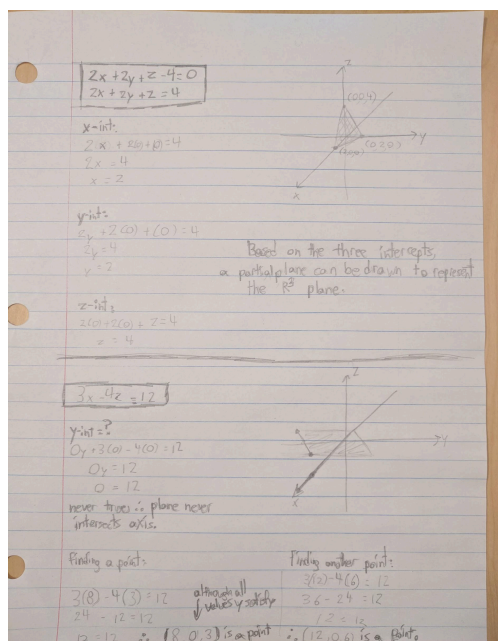 2x + 2y + z - 4 = 0
2x + 2y + z = 4
x-int:
2x + 2(0) + (0) = 4
2x = 4
x = 2
y-int:
2y + 2(0) + (0) = 4
2y = 4
y = 2
z-int:
2(0) + 2(0) + z = 4
z = 4
z
(0,0,4)
y
(0,2,0)
(2,0,0)
x
Based on the three intercepts,
a partial plane can be drawn to represent
the R³ plane.
3x - 4z = 12
y-int = ?
0y + 3(0) - 4(0) = 12
0y = 12
0 = 12
never true ∴ plane never
intersects axis.
z
y
x
finding a point:
3(8) - 4(3) = 12
24 - 12 = 12
12 = 12 ∴ (8, 0, 3) is a point
although all
values y satisfy
finding another point:
3(12) - 4(6) = 12
36 - 24 = 12
12 = 12
∴ (12, 0, 6) is a point.